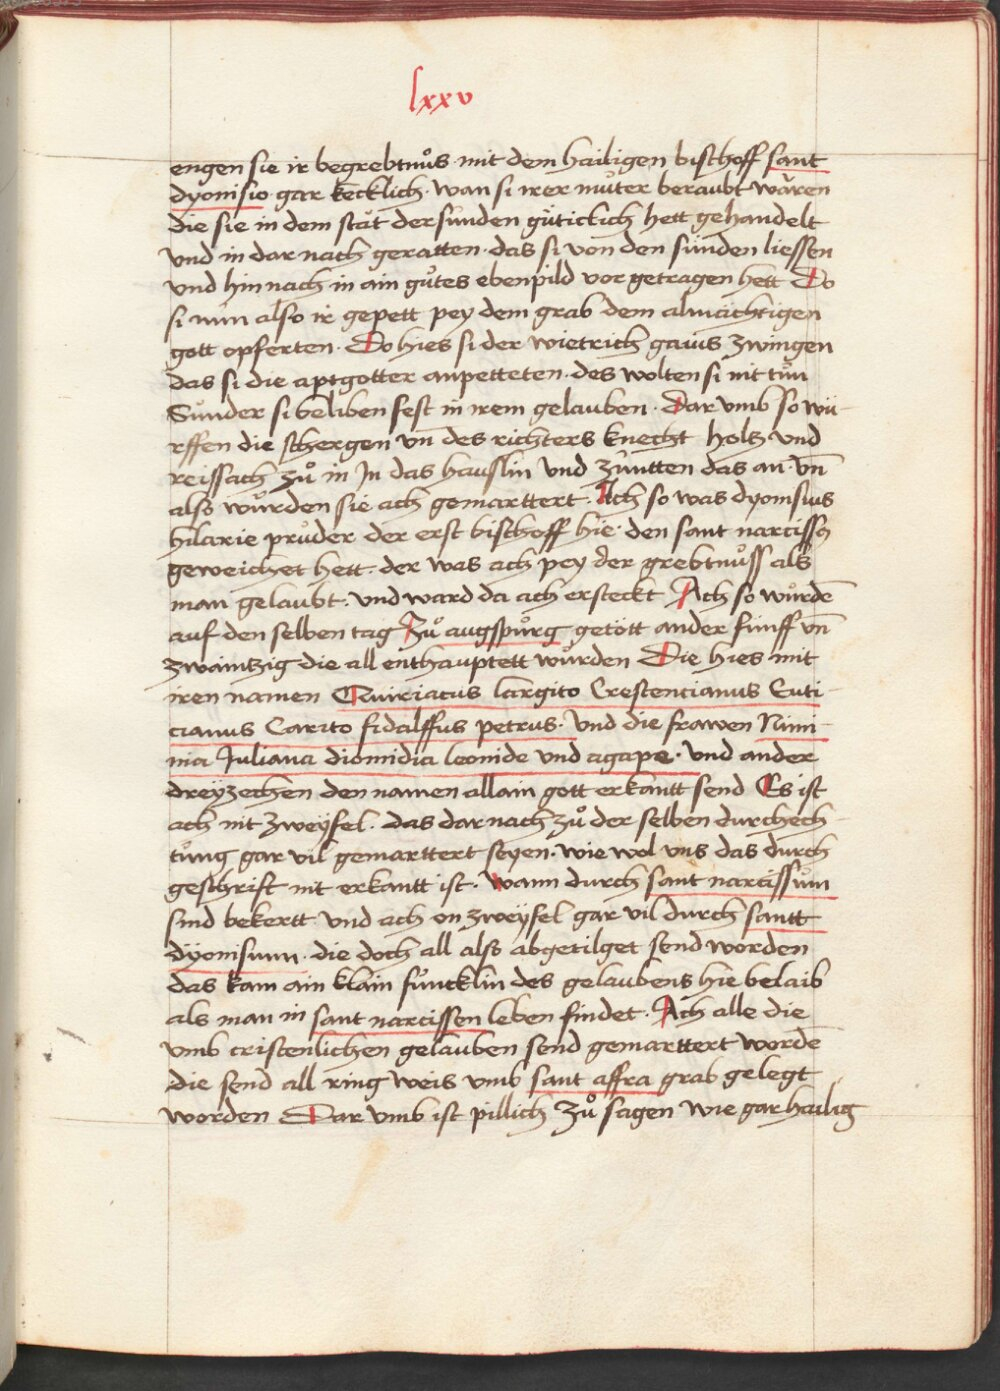 lxxv
engen sie ir begrebtnůs · mit dem hailigen bischoff sant
dyonisio gar kecklich · wan si irer můter beraubt wären
die sie in dem stät der sünden gütickich hett gehandelt
vnd in dar nach geratten · das si von den sünden liessen
vnd hin nach in ain gůtes ebenpild vor getragen hett Do
si nun also ir gepett pey dem grab dem almächtigen
gott opferten · Do hies si der wietrich gaius zwingen
das si die aptgotter anpetteten · des wolten si nit tůn
Sunder si beliben fest in irem gelauben · Dar vmb so wu-
rffen die schergen vn̄ des richters knecht holtz vnd
reissach zů in In das hauslin vnd zuntten das an · vn̄
also wurden sie ach gemarttert · Ach so was dyonisius
hilarie průder der erst bischoff hie · den sant narcissq
geweichet hett · der was ach pey der grebtnůss als
man gelaubt · vnd ward da ach ersteckt Ach so wurdē
auf den selben tag Zů augspůrg getött ander fünff vn̄
zwaintzig die all enthauptett wurden Die hies mit
iren namen Quiriacus largito Crestencianus Euti-
cianus Carito fidalffus petrus · vnd die frawen Nimi-
nia Juliana diomidia leonide vnd agape · vnd ander
dreyzechen den namen allain gott erkantt send Es ist
ach nit zweyfel · das dar nach zů der selben durchech-
tung gar vil gemarttert seyen · wie wol vns das durch
geschrift nit erkantt ist · wann durch sant narcissum
sind bekertt vnd ach on zweyfel gar vil durch santt
dyonisium · die doch all also abgetilget send worden
das kam ain klain füncklin des gelaubens hie belaib
als man in sant narcissen leben findet · Ach alle die
vmb cristenlichen gelauben send gemarttert wordē
die send all ring weis vmb sant affra grab gelegt
worden Dar vmb ist pillich zů sagen wie gar hailig